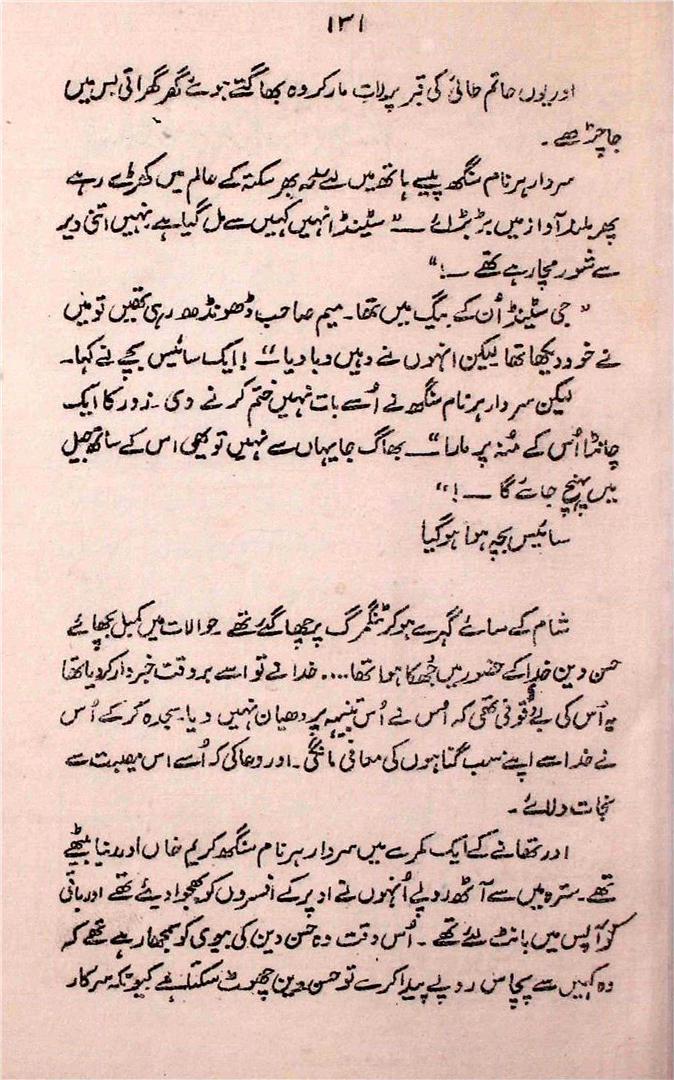 ۱۳۱
اور یوں حاتم طائی کی قبر پر لات مار کر وہ بھاگتے ہوئے گھر گھراتی بس میں
جا چڑھے۔
سردار ہرنام سنگھ پیسے ہاتھ میں لئے لمحہ بھر سکتہ کے عالم میں کھڑے رہے
پھر بلند آواز میں بڑبڑائے — " سٹینڈ انہیں کہیں سے مل گیا ہے نہیں اتنی دیر
سے شور مچا رہے تھے —!"
" جی سٹینڈ اُن کے بیگ میں تھا۔ میم صاحب ڈھونڈھ رہی تھیں تو میں
نے خود دیکھا تھا لیکن انہوں نے وہیں دبا دیا —" ! ایک سائیس بچے نے کہا۔
لیکن سردار ہرنام سنگھ نے اُسے بات نہیں ختم کرنے دی۔ زور کا ایک
چانٹا اُس کے مُنہ پر مارا "— بھاگ جا یہاں سے نہیں تو بھی اس کے ساتھ جیل
میں پہنچ جائے گا —!"
سائیس بچہ ہوا ہو گیا
شام کے سائے گہرے ہو کر ٹنگمرگ پر چھا گئے تھے۔ حوالات میں کمبل بچھائے
حسن دین خدا کے حضور میں جُھکا ہوا تھا .... خدا نے تو اسے بروقت خبردار کر دیا تھا
یہ اُس کی بے وقوفی تھی کہ اُس نے اُس تنبیہہ پر دھیان نہیں دیا۔ سجدہ کر کے اُس
نے خدا سے اپنے سب گناہوں کی معافی مانگی۔ اور دعا کی کہ اُسے اس مصیبت سے
نجات دلائے۔
اور تھانے کے ایک کمرے میں سردار ہرنام سنگھ کریم خاں اور بیٹھے
تھے۔ سترہ میں سے آٹھ روپے اُنہوں نے اوپر کے افسروں کو بھجوا دیئے تھے اور باقی
کو آپس میں بانٹ لئے تھے۔ اُس وقت وہ حسن دین کی بیوی کو سمجھا رہے تھے کہ
وہ کہیں سے پچاس روپے پیدا کرے تو حسن دین چھوٹ سکتا ہے کیونکہ سرکار